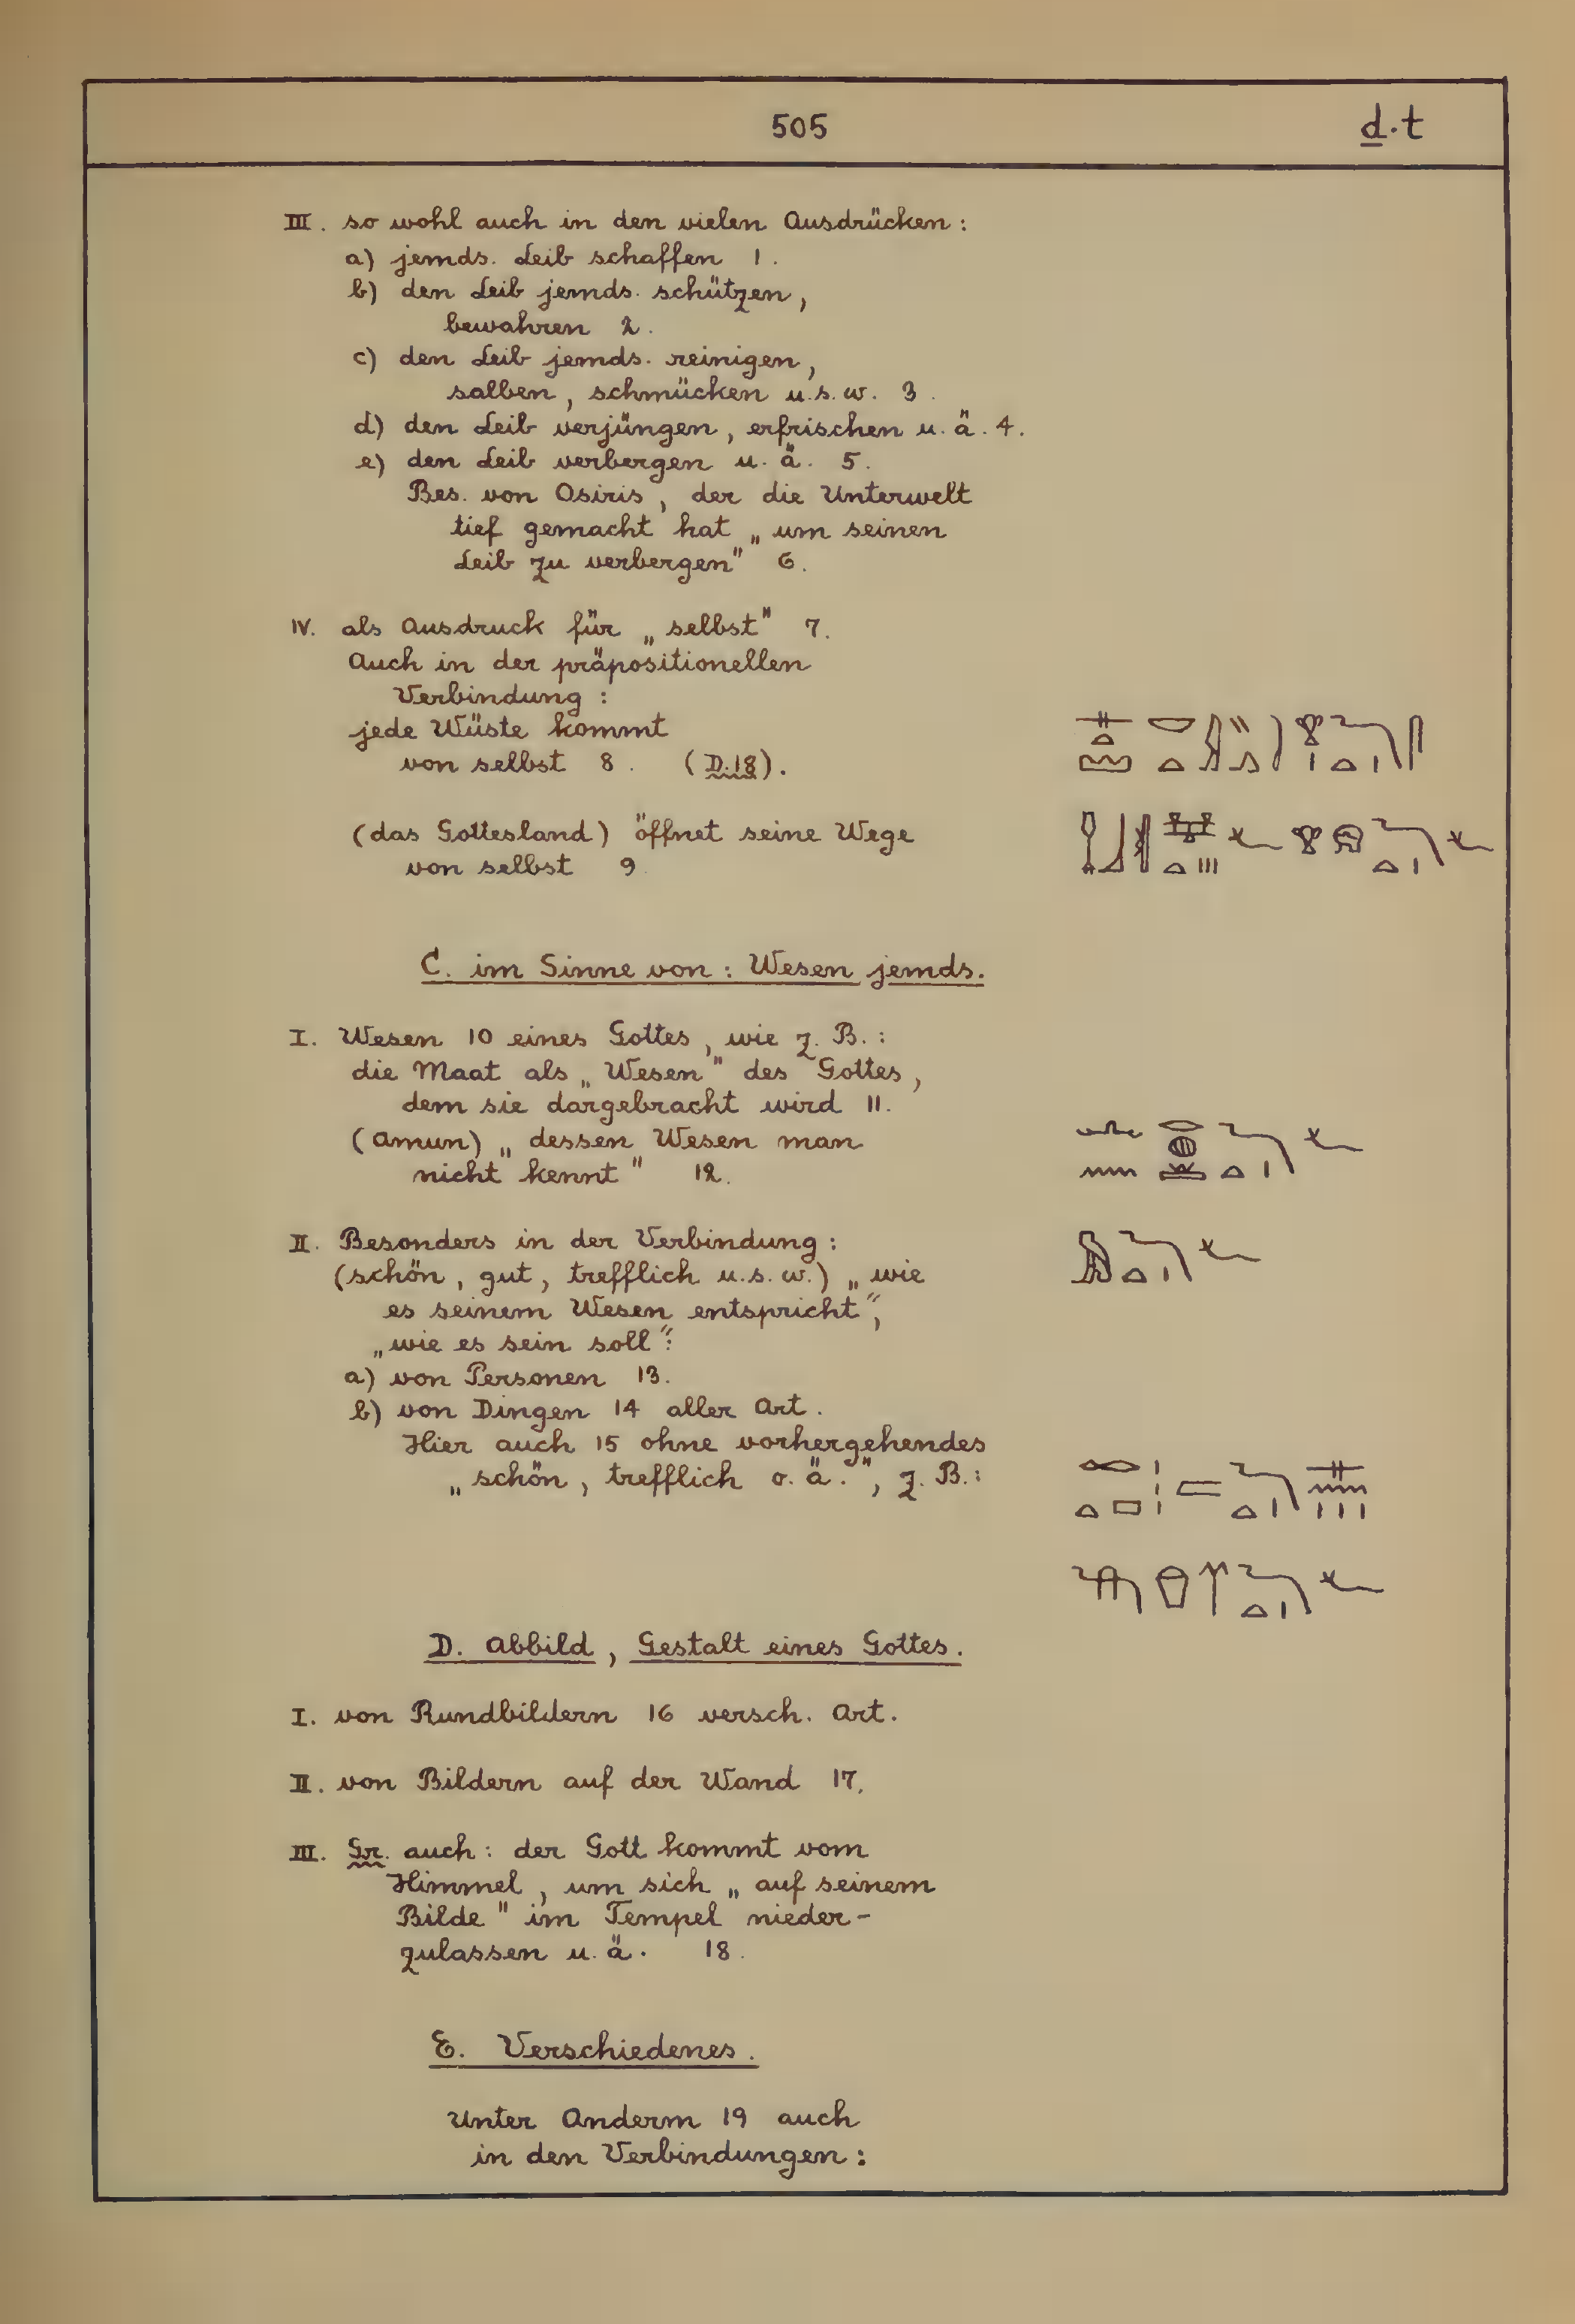 505 ḏ.t
III. so wohl auch in den vielen Ausdrücken:
a) jemds. Leib schaffen 1.
b) den Leib jemds. schützen,
bewahren 2.
c) den Leib jemds. reinigen,
salben, schmücken u.s.w. 3.
d) den Leib verjüngen, erfrischen u.ä. 4.
e) den Leib verbergen u.ä. 5.
Bes. von Osiris, der die Unterwelt
tief gemacht hat „um seinen
Leib zu verbergen" 6.
IV. als Ausdruck für „selbst" 7.
Auch in der präpositionellen
Verbindung:
jede Wüste kommt
von selbst 8. (D.18).
(das Gottesland) öffnet seine Wege
von selbst 9.
C. im Sinne von: Wesen jemds.
I. Wesen 10 eines Gottes, wie z.B.:
die Maat als „Wesen" des Gottes,
dem sie dargebracht wird 11.
(Amun) „dessen Wesen man
nicht kennt" 12.
II. Besonders in der Verbindung:
(schön, gut, trefflich u.s.w.) „wie
es seinem Wesen entspricht",
„wie es sein soll":
a) von Personen 13.
b) von Dingen 14 aller Art.
Hier auch 15 ohne vorhergehendes
„schön, trefflich o.ä.", z.B.:
D. Abbild, Gestalt eines Gottes.
I. von Rundbildern 16 versch. Art.
II. von Bildern auf der Wand 17.
III. Gr. auch: der Gott kommt vom
Himmel, um sich „auf seinem
Bilde" im Tempel nieder-
zulassen u.ä. 18.
E. Verschiedenes.
Unter Anderm 19 auch
in den Verbindungen: